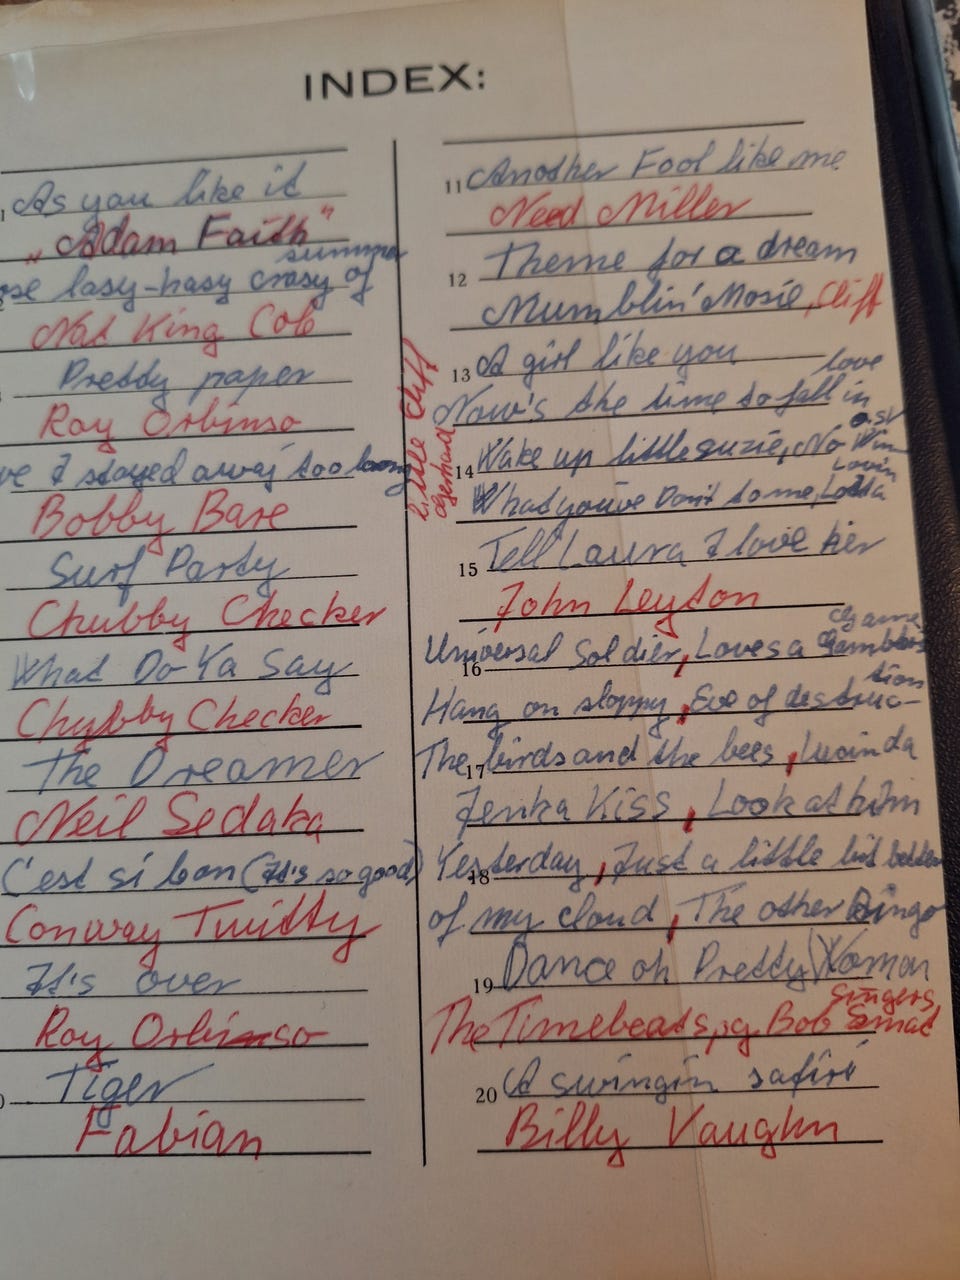 INDEX:
1 As you like it
"Adam Faith"
summer
lasy-hasy crasy of
Nat King Cole
Pretty paper
Roy Orbinso
I stayed away too long
Bobby Bare
Surf Party
Chubby Checker
What Do Ya Say
Chubby Checker
The Dreamer
Neil Sedaka
C'est si bon (It's so good)
Conway Twitty
It's over
Roy Orbinso
Tiger
Fabian
11 Another Fool like me
Ned Miller
12 Theme for a dream
Mumblin' Mosie, Cliff
13 A girl like you
love
Now's the time to fall in
14 Wake up little suzie, No Win
Lovin
What you've Don't to me, Lotta
Cliff
15 Tell Laura I love her
John Leyton
16 Universal Soldier, Loves a
Hang on sloppy, Eve of destruc-
tion
17 The birds and the bees, Lucinda
Jenka Kiss, Look at him
18 Yesterday, Just a little bit better
of my cloud, The other Ringo
19 Dance oh Pretty Woman
singers
The Timebeats, Bob
20 A swingin safiri
Billy Vaughn